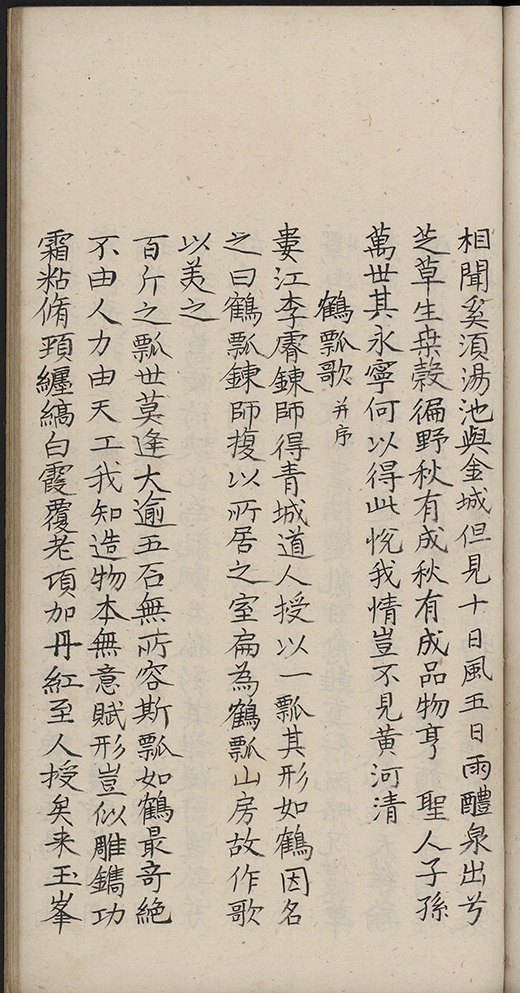 相聞奚須湯池與金城但見十日風五日雨醴泉出兮
芝草生桑穀徧野秋有成秋有成品物亨 聖人子孫
萬世其永寧何以得此悅我情豈不見黃河清
鶴瓢歌 并序
婁江李睿鍊師得青城道人授以一瓢其形如鶴因名
之曰鶴瓢鍊師復以所居之室扁為鶴瓢山房故作歌
以美之
百斤之瓢世莫逢大逾五石無所容斯瓢如鶴最奇絕
不由人力由天工我知造物本無意賦形豈似雕鐫功
霜粘脩頸纏縞白霞覆老項加丹紅至人授矣来玉峯